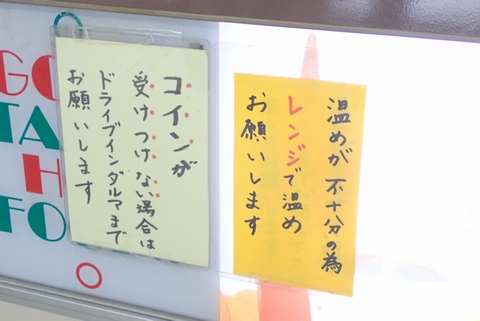 温めが不十分の為
レンジで温め
お願いします
コインが
受けつけない場合は
ドライブインダルマまで
お願いします
GO
TA
H
FO